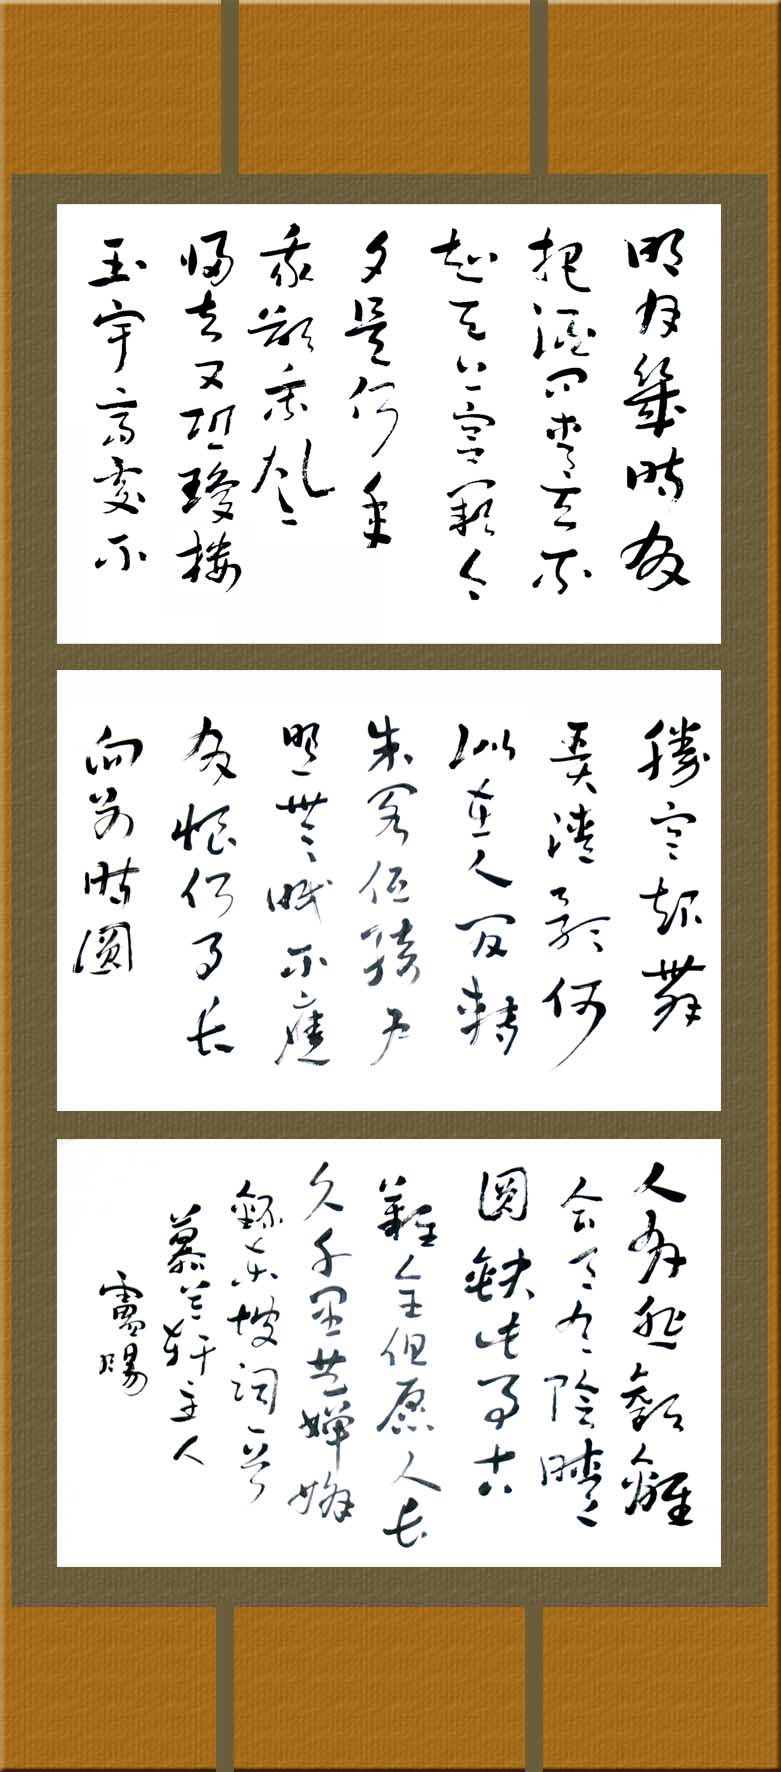 明月幾時有
把酒问青天不
知天上宫闕今
夕是何年
我欲乘风
歸去又恐瓊樓
玉宇高處不
勝寒起舞
弄清影何
似在人间轉
朱阁低綺户
照無眠不應
有恨何事长
向别時圓
人有悲歡離
合月有陰晴
圓缺此事古
難全但愿人长
久千里共嬋娟
錄东坡词一首
慕兰轩主人